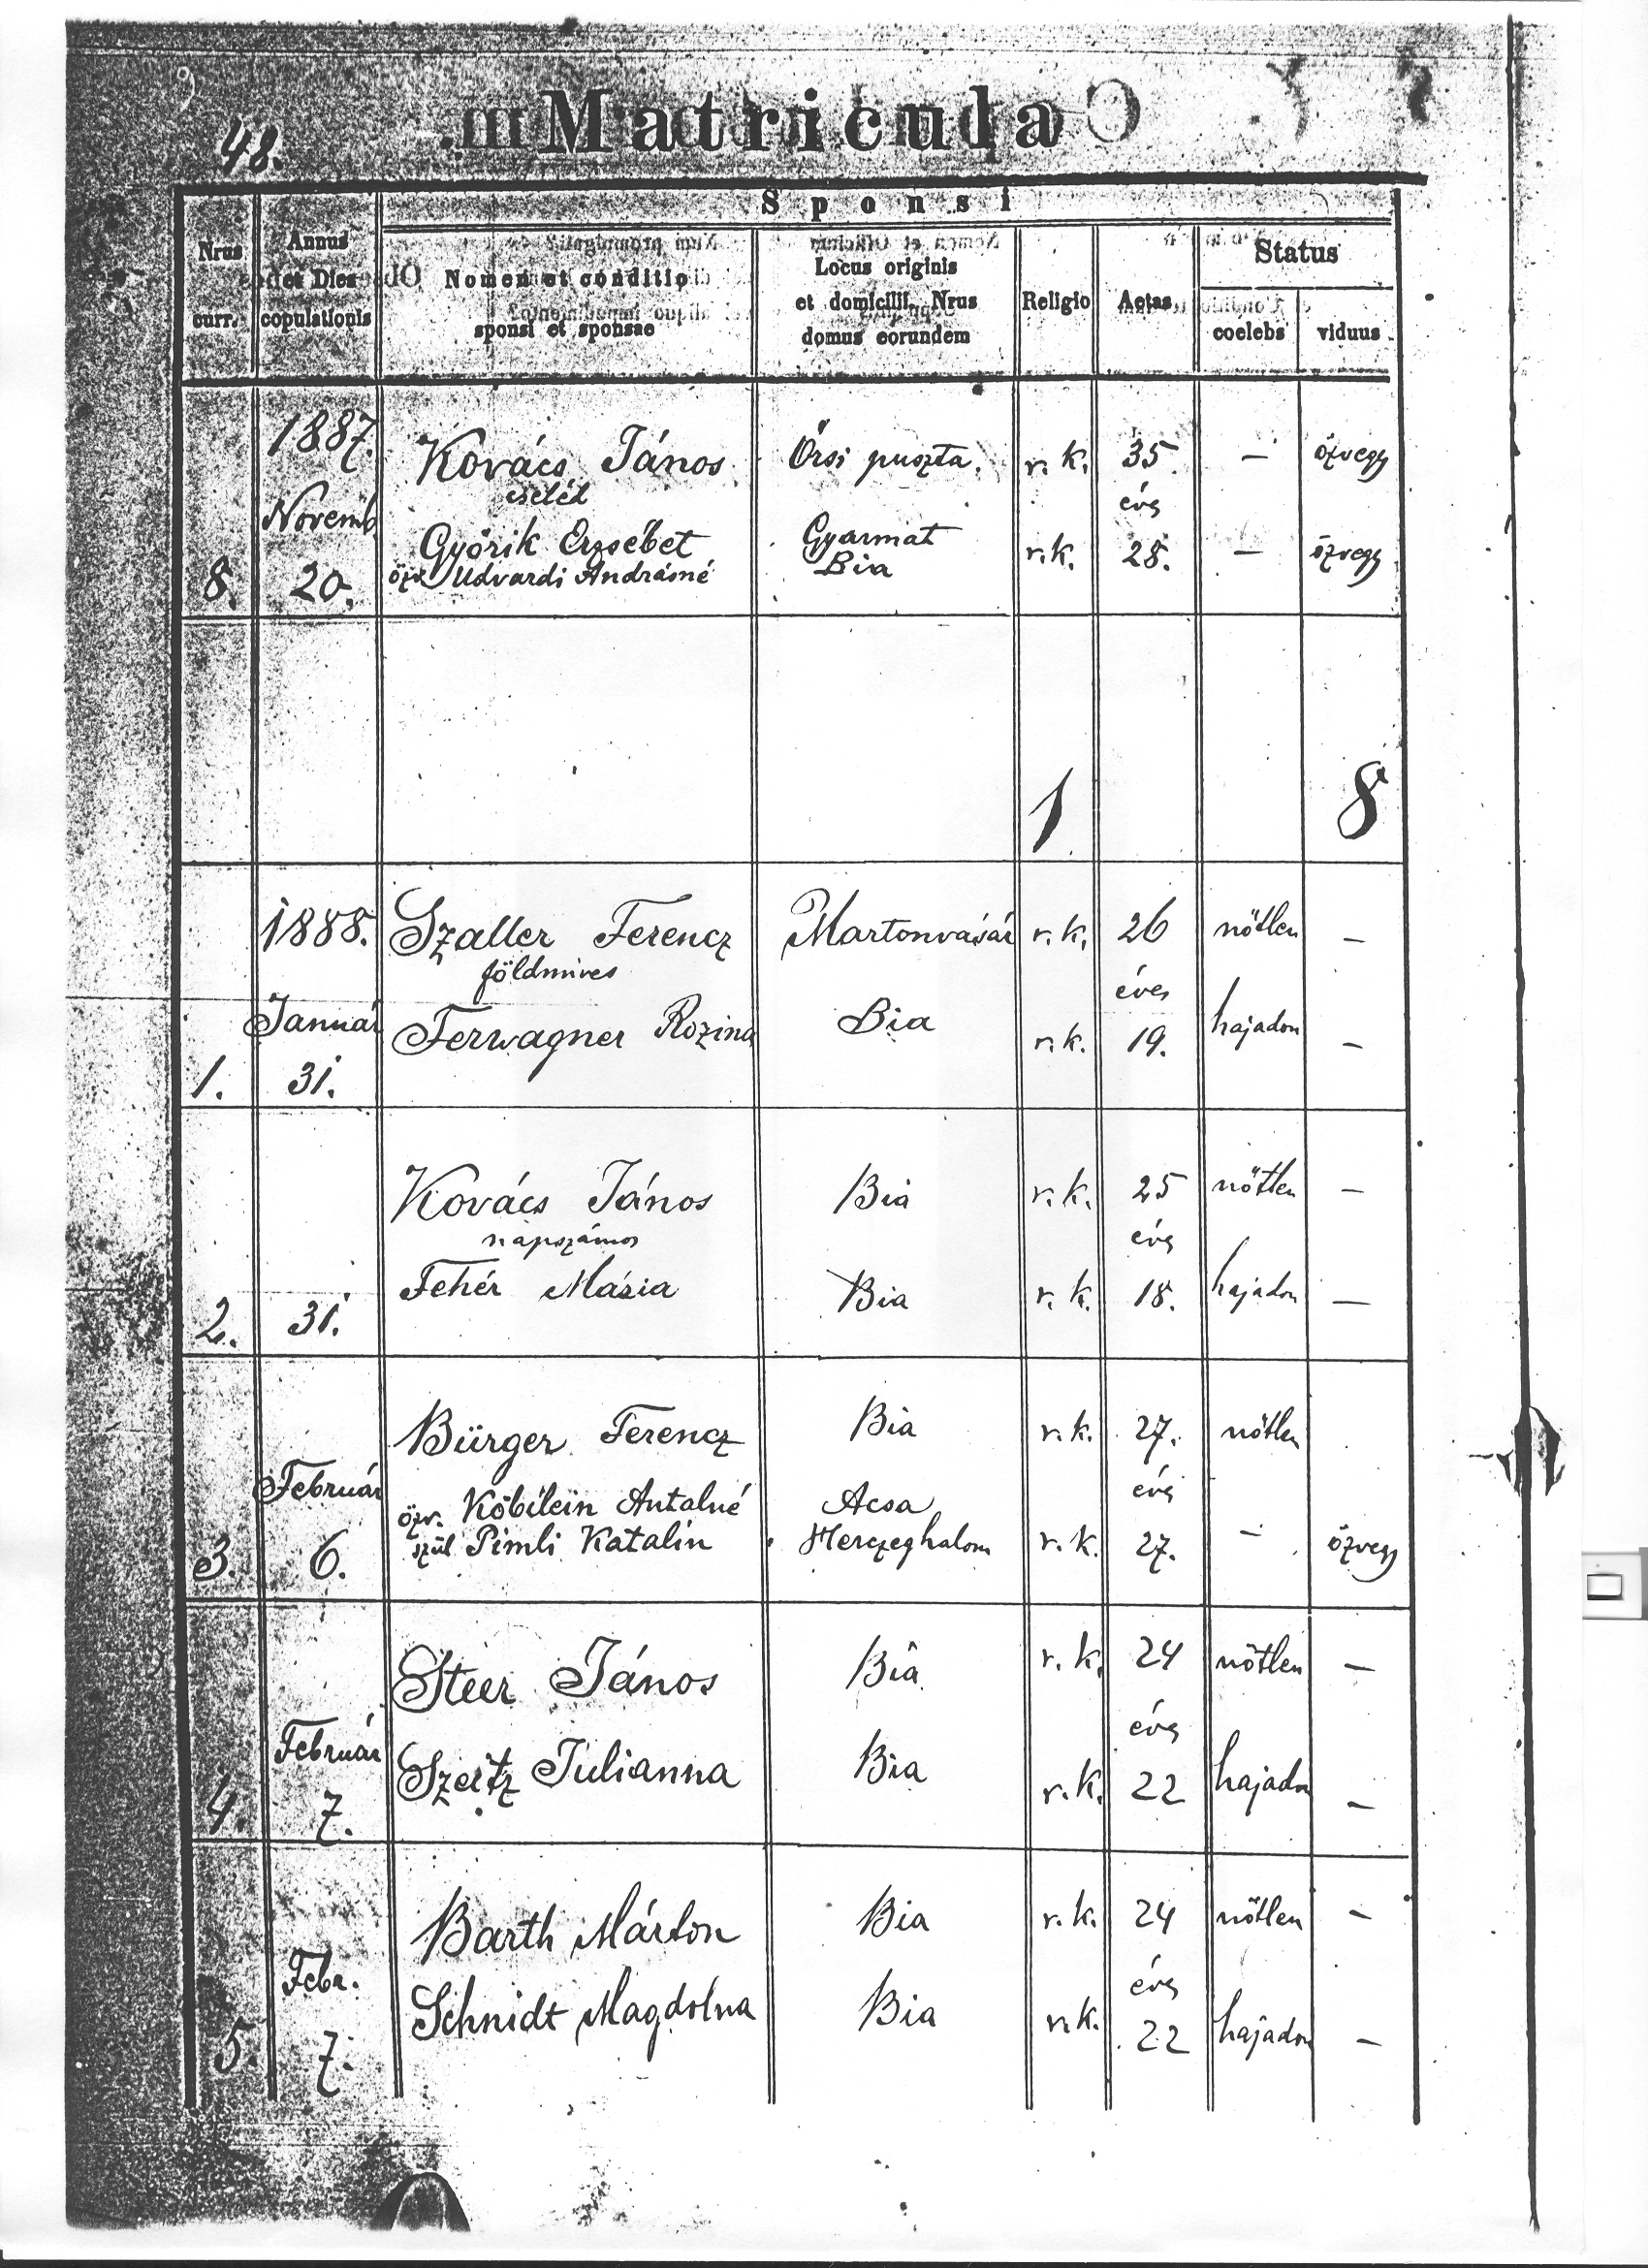 48.
Matricula
Sponsi
Nrus curr.
Annus et Dies copulationis
Nomen et conditio sponsi et sponsae
Locus originis et domicilii. Nrus domus eorundem
Religio
Aetas
Status
coelebs
viduus
1887. Kovács János Örsi puszta. r. k. 35. — özvegy
cseléd évs
Novemb Győrik Erzsébet Gyarmat r. k. 28. — özvegy
8. 20. özv Udvardi Andrásné Bia
1 8
1888. Szaller Ferencz Martonvásár r. k. 26 nőtlen —
földmives éves
Január Ferwagner Rozina Bia r. k. 19. hajadon —
1. 31.
Kovács János Bia r. k. 25 nőtlen —
napszámos évs
Fehér Mária Bia r. k. 18. hajadon —
2. 31.
Bürger Ferencz Bia r. k. 27. nőtlen
Február özv. Köbilein Antalné Acsa évs
3. 6. szül Pimli Katalin Herczeghalom r. k. 27. — özvegy
Steer János Bia r. k. 24 nőtlen —
évs
Február Szeitz Julianna Bia r. k. 22 hajadon —
4. 7.
Barth Márton Bia r. k. 24 nőtlen —
Febr. évs
5. 7. Schnidt Magdolna Bia r. k. 22 hajadon —